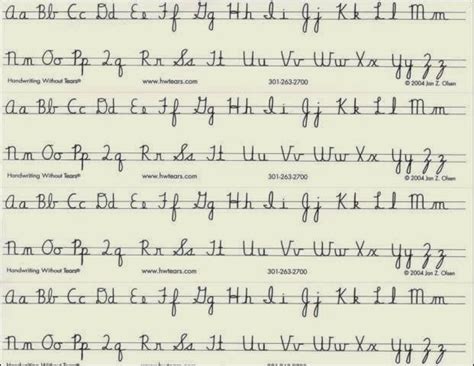 Aa Bb Cc Dd Ee Ff Gg Hh Ii Jj Kk Ll Mm
Nn Oo Pp Qq Rr Ss Tt Uu Vv Ww Xx Yy Zz
Handwriting Without Tears® www.hwtears.com 301-263-2700 © 2004 Jan Z. Olsen
Aa Bb Cc Dd Ee Ff Gg Hh Ii Jj Kk Ll Mm
Nn Oo Pp Qq Rr Ss Tt Uu Vv Ww Xx Yy Zz
Handwriting Without Tears® www.hwtears.com 301-263-2700 © 2004 Jan Z. Olsen
Aa Bb Cc Dd Ee Ff Gg Hh Ii Jj Kk Ll Mm
Nn Oo Pp Qq Rr Ss Tt Uu Vv Ww Xx Yy Zz
Handwriting Without Tears® www.hwtears.com 301-263-2700 © 2004 Jan Z. Olsen
Aa Bb Cc Dd Ee Ff Gg Hh Ii Jj Kk Ll Mm
Nn Oo Pp Qq Rr Ss Tt Uu Vv Ww Xx Yy Zz
Handwriting Without Tears®